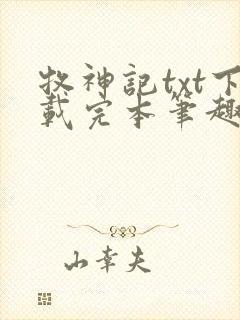 牧神記txt下
載完本筆趣
山幸夫